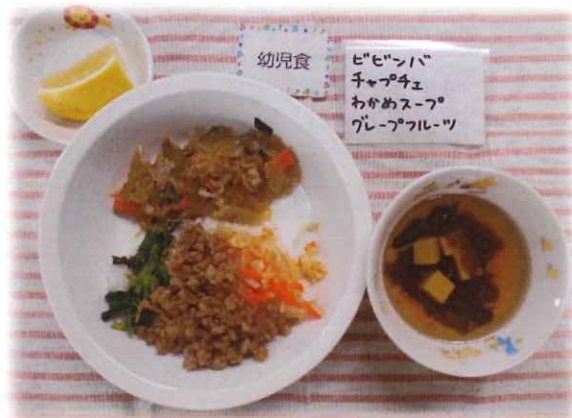 幼児食
ビビンバ
チャプチェ
わかめスープ
グレープフルーツ